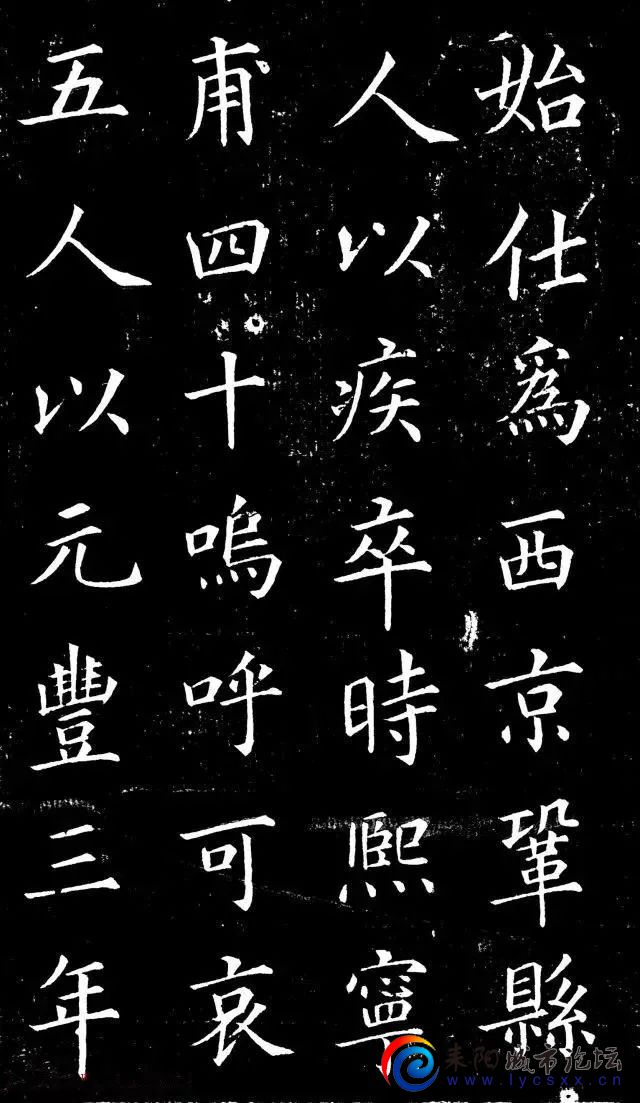 始仕爲西京鞏縣
人以疾卒時熙寧
甫四十嗚呼可哀
五人以元豐三年
耒阳城市论坛
www.lycsxx.cn